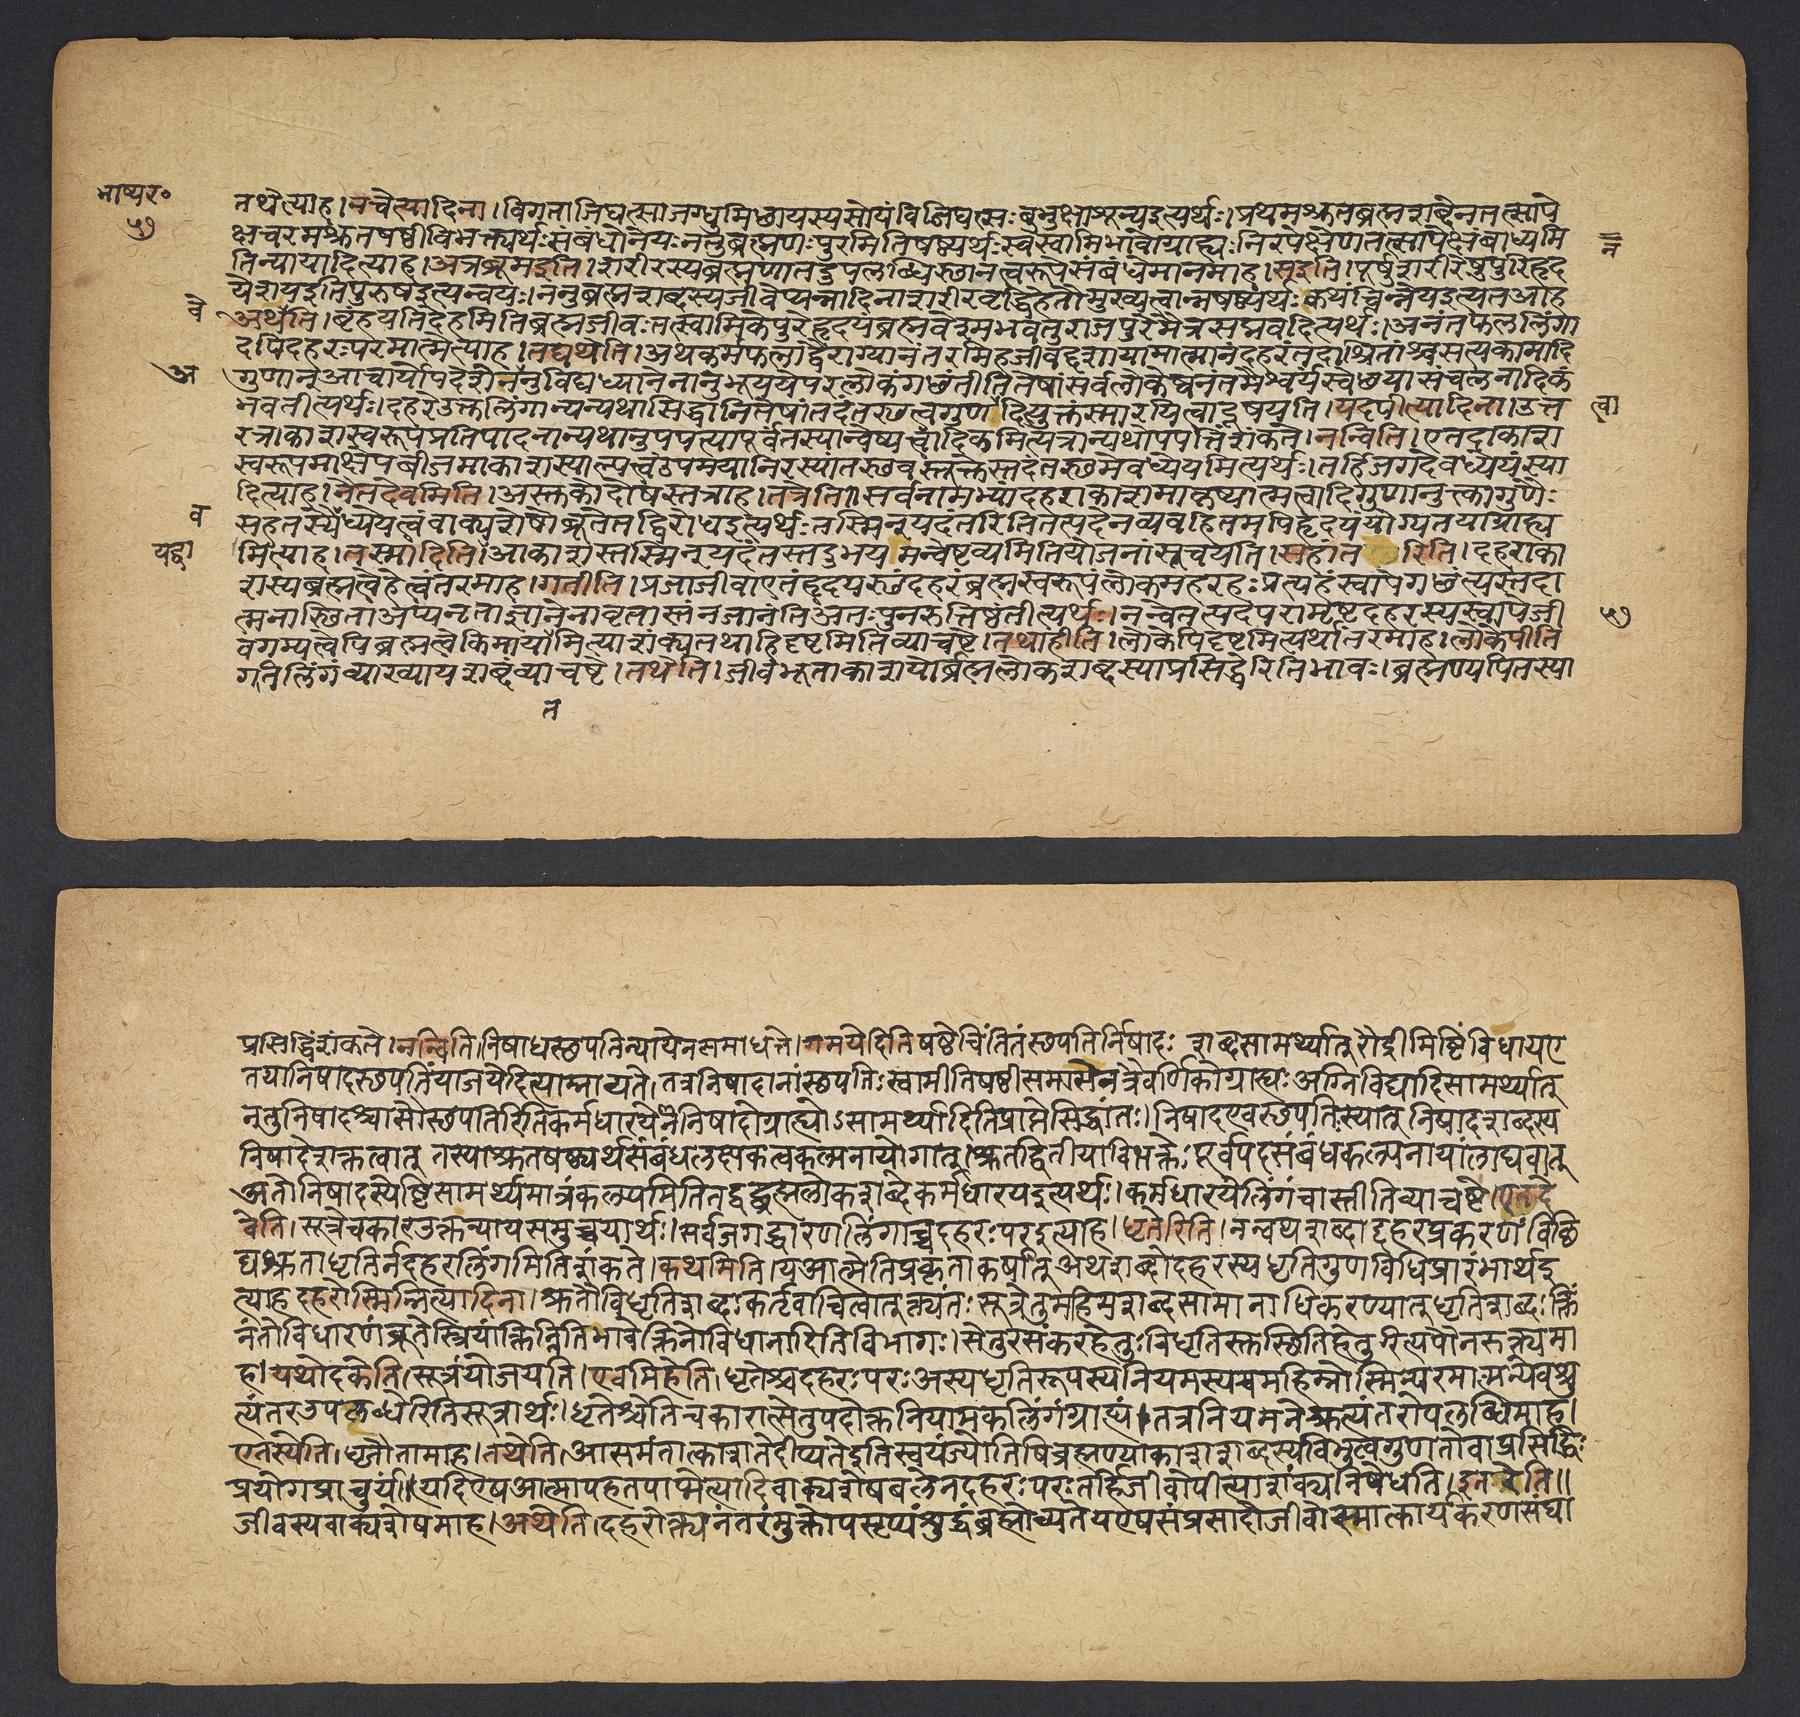 भाष्यर॰
५७
तथेत्याह।नचेत्यादिना।विगताजिघत्साजग्धुमिछायस्यसोयंविजिघत्सःबुभुक्षाशून्यइत्यर्थः।प्रथमश्रुतब्रह्मशब्देनतत्सापे
क्षचरमश्रुतषष्ठीविभक्त्यर्थःसंबंधोनेयःनतुब्रह्मणःपुरमितिषष्ठ्यर्थःस्वस्वामिभावोग्राह्यःनिरपेक्षेणतत्सापेक्षंबाध्यमि
न
तिन्यायादित्याह।अत्रब्रूमइति।शरीरस्यब्रह्मणातदुपलब्धिस्थानत्वरूपेसंबंधेमानमाह।सइति।पूर्षुशरीरेषुपुरिहृद
येशयइतिपुरुषइत्यन्वयः।ननुब्रह्मशब्दस्यजीवेप्यन्नादिनाशरीरवृद्धिहेतौमुख्यत्वान्नषष्ठ्यर्थःकथंचिन्नेयइत्यतआह
वे
अथेति।बृंहयतिदेहमितिब्रह्मजीवःतत्स्वामिकेपुरेहृदयंब्रह्मवेश्मभवतुराजपुरेमैत्रसद्मवदित्यर्थः।अनंतफललिंगा
दपिदहरःपरमात्मेत्याह।तद्यथेति।अथकर्मफलाद्वैराग्यानंतरमिहजीवद्दशायामात्मानंदहरंतदाश्रितांश्चसत्यकामादि
अ
गुणान्आचार्योपदेशेननुविद्यध्यानेनानुभूययेपरलोकंगछंतीतितेषांसर्वलोकेष्वनंतमैश्वर्यंस्वेछयासंचलनादिकं
भवतीत्यर्थः।दहरेउक्तलिंगान्यन्यथासिद्धानितेषांतदंतस्थत्वगुणादियुक्तस्मारयित्वादूषयति।यदपीत्यादिना।उत्त
त्वा
रत्र।काशस्वरूपप्रतिपादनान्यथानुपपत्त्यापूर्वंतस्यान्वेष्यत्वादिकमित्यत्रान्यथोपपत्तिंशंकते।नन्विति।एतदाकाश
स्वरूपमाक्षेपबीजमाकाशस्याल्पत्वंउपमयानिरस्यांतस्थवस्तूक्तेस्तदंतस्थमेवध्येयमित्यर्थः।तर्हिजगदेवध्येयंस्या
दित्याह।नैतदेवमिति।अस्तुकोदोषस्तत्राह।तत्रेति॥सर्वनामभ्यांदहराकाशमाकृष्यात्मत्वादिगुणानुक्त्कागुणैः
व
सहतस्यैध्येयत्वंवाक्यशेषोब्रूतेतद्विरोधइत्यर्थःतस्मिन्यदंतरितितत्पदेनव्यवहितमपिहृदयंयोग्यतयाग्राह्य
यद्वा
मित्याह।तस्मादिति।आकाशस्तस्मिन्यदंतस्तदुभयमन्वेष्टव्यमितियोजनांसूचयति।सहांतरिति।दहराका
शस्यब्रह्मत्वेहेत्वंतरमाह।गतीति।प्रजाजीवाएतंहृदयस्थंदहरंब्रह्मस्वरूपंलोकमहरहःप्रत्यहंस्वापेगछंत्यस्तदा
त्मनास्थिताअप्यनृताज्ञानेनावृतास्तंनजानंतिअतःपुनरुत्तिष्ठंतीत्यर्थः।नन्वेतत्पदपरामृष्टदहरस्यस्वापेजी
५७
वगम्यत्वेपिब्रह्मत्वेकिमायातमित्याशंक्यतथाहिदृष्टमितिव्याचष्टे।तथाहीति।लोकेपिदृष्टमित्यर्थांतरमाह।लोकेपीति
गतिलिंगंव्याख्यायशब्दंव्याचष्टे।तथेति।जीवभूताकाशयोर्ब्रह्मलोकशब्दस्याप्रसिद्धेरितिभावः।ब्रह्मण्यपितस्या
त
प्रसिद्धिंशंकते।नन्विति।निषाधस्थपतिन्यायेनसमाधत्ते।गमयेदितिषष्ठेचिंतितंस्थपतिर्निषादः शब्दसामर्थ्यात्रौद्रीमिष्टिंविधायए
तयानिषादस्थपतिंयाजयेदित्याम्नायते।तत्रनिषादानांस्थपतिःस्वामीतिषष्ठीसमासेनत्रैवर्णिकोग्राह्यःअग्निविद्यादिसामर्थ्यात्
नतुनिषादश्चासौस्थपतिरितिकर्मधारयेणनिषादोग्राह्योऽसामर्थ्यादितिप्राप्तेसिद्धांतः।निषादएवस्थपतिःस्यात्निषादशब्दस्य
निषादेशक्तत्वात् तस्याश्रुतषष्ठ्यर्थसंबंधलक्षकत्वकल्पनायोगात्।श्रुतद्वितीयाविभक्तेःपूर्वपदसंबंधकल्पनायांलाघवात्
अतोनिषादस्येष्टिसामर्थ्यमात्रंकल्प्यमितितद्वद्ब्रह्मलोकशब्देकर्मधारयइत्यर्थः।कर्मधारयेलिंगंचास्तीतिव्याचष्टे।एतदे
वेति।सूत्रेचकारउक्तन्यायसमुच्चयार्थः।सर्वजगद्धारणलिंगाच्चदहरःपरइत्याह।धृतेरिति।नन्वथशब्दाद्दहरप्रकरणंविछि
द्यश्रुताधृतिर्नदहरलिंगमितिशंकते।कथमिति।यआत्मेतिप्रकृताकर्षात्अथशब्दोदहरस्यधृतिगुणविधिप्रारंभार्थइ
त्याहदहरोस्मिन्नित्यादिना।श्रुतौविधृतिशब्दःकर्तृवाचित्वात्क्त्यंतःसूत्रेतुमहिमशब्दसामानाधिकरण्यात्धृतिशब्दःक्तिं
नंतोविधारणंब्रूतेस्त्रियांक्तिन्नितिभावेक्तिनोविधानादितिविभागः।सेतुरसंकरहेतुःविधृतिस्तुस्थितिहेतुरित्यपौनरुक्त्यमा
ह।यथोदकेति।सूत्रंयोजयति।एवमिहेति।धृतेश्चदहरःपरःअस्यधृतिरूपस्यनियमस्यचमहिम्नोस्मिन्परमात्मन्येवश्रु
त्यंतरउपलब्धेरितिसूत्रार्थः।धृतेश्चेतिचकारात्सेतुपदोक्तनियामकलिंगंग्राह्यं।तत्रनियमनेश्रुत्यंतरोपलब्धिमाह।
एतस्येति।धृतौतामाह।तथेति।आसमंतात्काशतेदीप्यतेइतिस्वयंज्योतिषिब्रह्मण्याकाशशब्दस्यविभुत्वगुणतोवाप्रसिद्धिः
प्रयोगप्राचुर्यं॥यदिएषआत्मापहतपाप्मेत्यादिवाक्यशेषबलेनदहरःपरःतर्हिजीवोपीत्याशंक्यनिषेधति।इतरेति॥
जीवस्यवाक्यशेषमाह।अथेति।दहरोक्त्यनंतरंमुक्तोपसृप्यंशुद्धंब्रह्मोच्यतेयएषसंप्रसादोजीवोस्मात्कार्यकरणसंघा